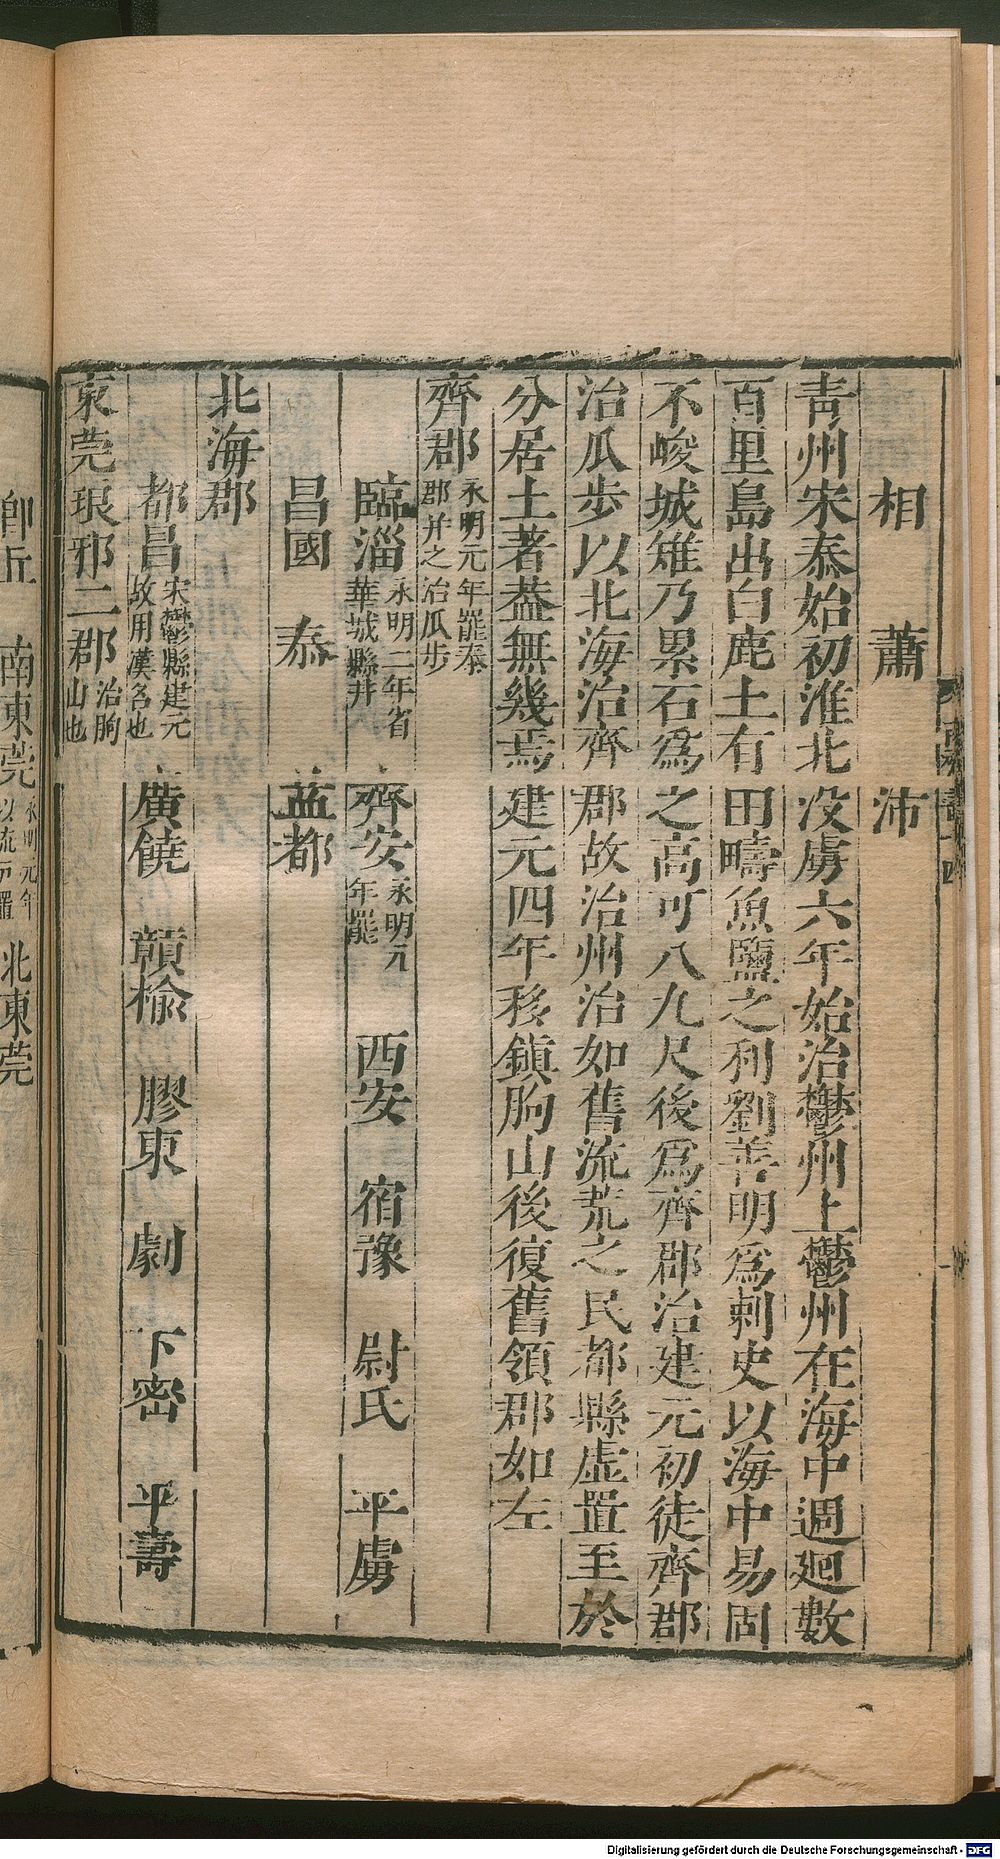 相 蕭 沛
青州宋泰始初淮北没虜六年始治鬱州上鬱州在海中週廻數
百里島出白鹿土有田疇魚鹽之利劉善明爲刺史以海中易固
不峻城雉乃累石爲之高可八九尺後爲齊郡治建元初徒齊郡
治瓜步以北海治齊郡故治州治如舊流荒之民郡縣虛置至於
分居土著葢無幾焉建元四年移鎮朐山後復舊領郡如左
齊郡永明元年罷秦郡并之治瓜步
臨淄永明二年省華城縣并 齊安永明元年罷 西安 宿豫 尉氏 平虜
昌國 泰 益都
北海郡
都昌宋鬱縣建元故用漢名也 廣饒 贛榆 膠東 劇 下密 平壽
東莞琅邪二郡治朐山也
卽丘 南東莞永明元年以流戸置 北東莞
Digitalisierung gefördert durch die Deutsche Forschungsgemeinschaft - DFG